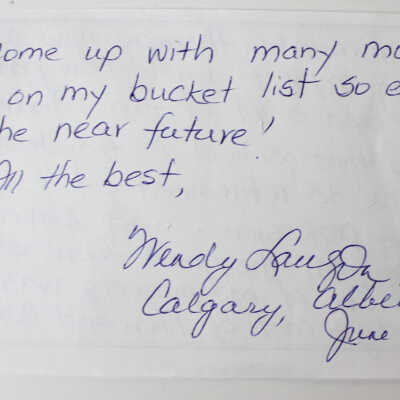 come up with many mo
on my bucket list so e
he near future!
All the best,
Wendy
Calgary, Albe
June